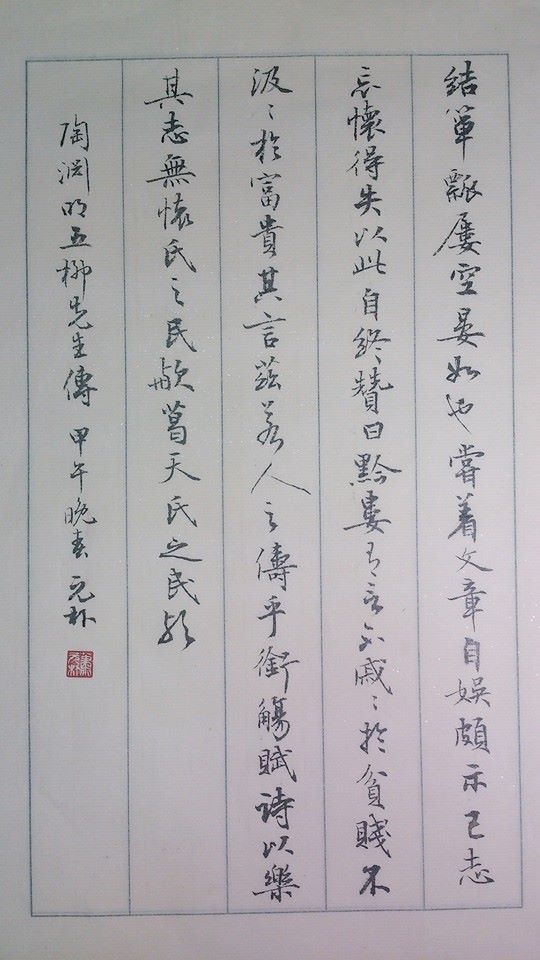 結簞瓢屢空晏如也嘗着文章自娛頗示己志
忘懷得失以此自終贊曰黔婁有言不戚〻於貧賤不
汲〻於富貴其言茲若人之儔乎銜觴賦詩以樂
其志無懷氏之民歟葛天氏之民歟
陶淵明五柳先生傳 甲午晚春 元朴